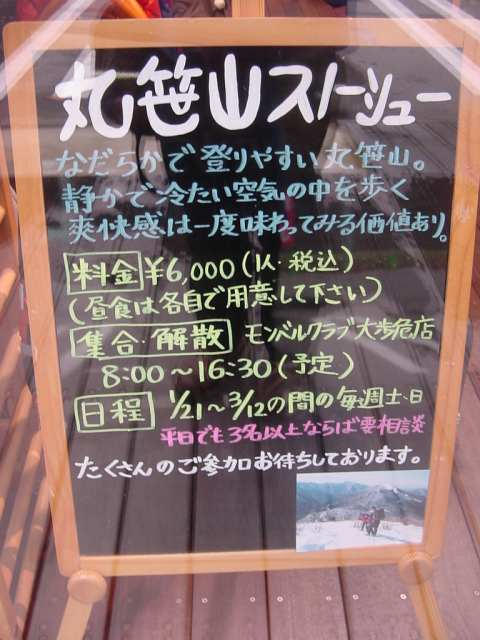 丸笹山スノーシュー
なだらかで登りやすい丸笹山。
静かで冷たい空気の中を歩く
爽快感は一度味わってみる価値あり。
料金 ¥6,000(1人・税込)
(昼食は各自で用意して下さい)
集合・解散 モンベルクラブ大歩危店
8:00〜16:30(予定)
日程 1/21〜3/12の間の毎週土・日
平日でも3名以上ならば要相談
たくさんのご参加お待ちしております。